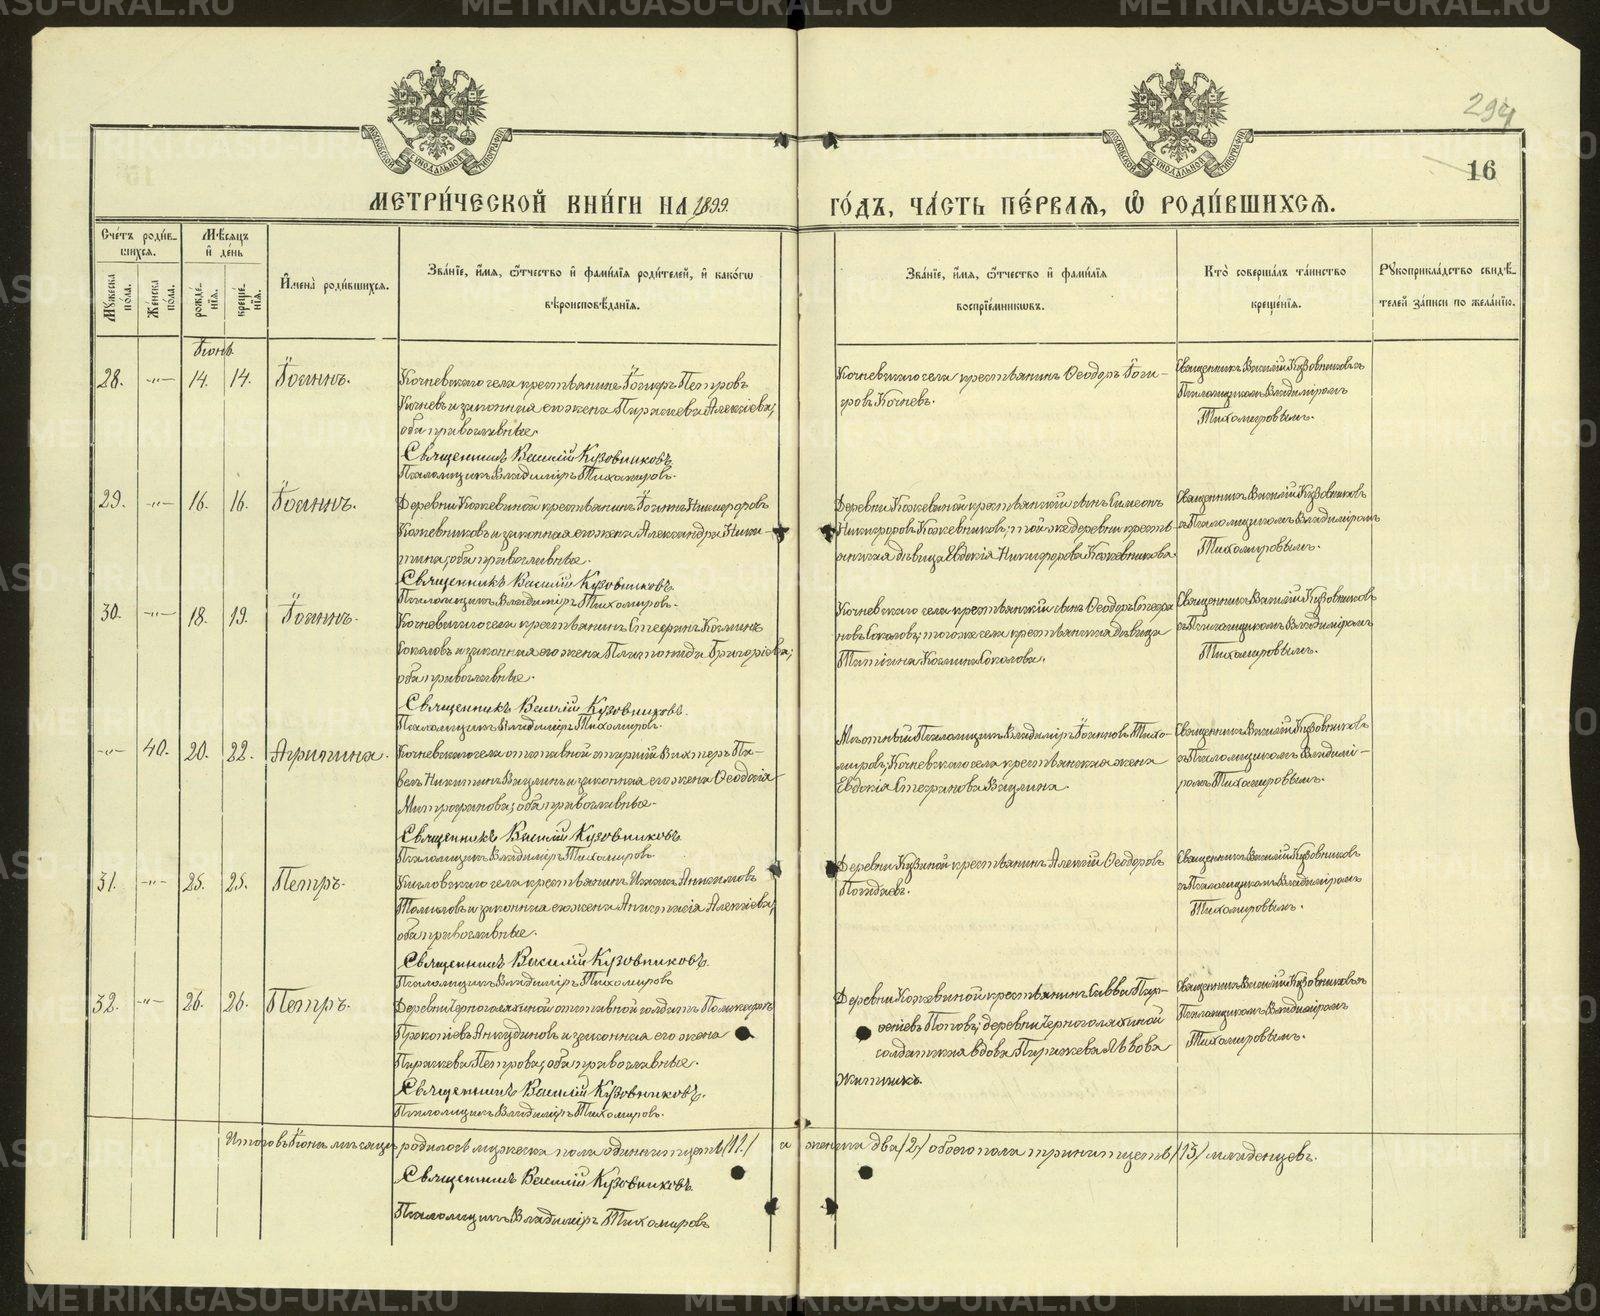 METRIKI.GASO-URAL.RU
294
16
МОСКОВСКОЙ СѴНОДАЛЬНОЙ ТИПОГРАФІИ
МЕТРИ́ЧЕСКОЙ КНИ́ГИ НА 1899 ГО́ДЪ, ЧА́СТЬ ПЕ́РВАѦ, Ѡ҆ РОДИ́ВШИХСѦ.
Сче́тъ роди́в-
шихся.
Мѣ́сяцъ
и҆ де́нь
Мꙋжеска по́ла.
Женска по́ла.
рожде́нїѧ.
креще́нїѧ.
И҆мена̀ роди́вшихся.
Зва́нїе, и҆́мя, ѻ҆́тчество и҆ фами́лїя роди́телей, и҆ како́гѡ
вѣроисповѣ́данїѧ.
Зва́нїе, и҆́мя, ѻ҆́тчество и҆ фами́лїя
воспрїе́мникѡвъ.
Кто̀ соверша́лъ та́инство
креще́нїѧ.
Рꙋкоприкла́дство свидѣ́-
телей за́писи по жела́нїю.
Іюнь
28. -"- 14. 14. Іоаннъ.
Кочневскаго села крестьянинъ Петровъ
Кочневъ и законная его жена Параскева Алексіева;
оба православные.
Священникъ Василій Кузовниковъ
Псаломщикъ Владиміръ Тихомировъ.
Кочневскаго села крестьянинъ Ѳеодоръ
ровъ Кочневъ.
Священникъ Василій Кузовниковъ съ
Псаломщикомъ Владиміромъ
Тихомировымъ.
29. -"- 16. 16. Іоаннъ.
Деревни Кожевиной крестьянинъ Іоаннъ Никифоровъ
Кожевниковъ и законная его жена Александра Ники-
тина; оба православные.
Священникъ Василій Кузовниковъ
Псаломщикъ Владиміръ Тихомировъ.
Деревни Кожевиной крестьянскій сынъ Симеонъ
Никифоровъ Кожевниковъ; той же деревни кресть-
янская дѣвица Евдокія Никифорова Кожевникова.
Священникъ Василій Кузовниковъ
съ Псаломщикомъ Владиміромъ
Тихомировымъ.
30. -"- 18. 19. Іоаннъ.
Кочневскаго села крестьянинъ Стефанъ Козминъ
Соколовъ и законная его жена Платонида Григоріева;
оба православные.
Священникъ Василій Кузовниковъ.
Псаломщикъ Владиміръ Тихомировъ.
Кочневскаго села крестьянскій сынъ Ѳеодоръ Стефа-
новъ Соколовъ; того же села крестьянская дѣвица
Татіана Козмина Соколова.
Священникъ Василій Кузовниковъ
съ Псаломщикомъ Владиміромъ
Тихомировымъ.
-"- 40. 20. 22. Агрипина.
Кочневскаго села отставной старшій Вахтеръ Па-
велъ Никитинъ и законная его жена Ѳеодосія
Митрофанова; оба православные.
Священникъ Василій Кузовниковъ
Псаломщикъ Владиміръ Тихомировъ.
Мѣстный Псаломщикъ Владиміръ Іоанновъ Тихо-
мировъ; Кочневскаго села крестьянская жена
Евдокія Стефанова
Священникъ Василій Кузовниковъ
съ Псаломщикомъ Владимі-
ромъ Тихомировымъ.
31. -"- 25. 25. Петръ.
Кисловскаго села крестьянинъ Анисимовъ
Томиловъ и законная его жена Анастасія Алексіева;
оба православные.
Священникъ Василій Кузовниковъ.
Псаломщикъ Владиміръ Тихомировъ
Деревни крестьянинъ Алексій Ѳеодоровъ
Священникъ Василій Кузовниковъ
съ Псаломщикомъ Владиміромъ
Тихомировымъ.
32. -"- 26. 26. Петръ.
Деревни Черноголяхиной отставной солдатъ Поликарпъ
Прокопіевъ Анкудиновъ и законная его жена
Параскева Петрова; оба православные.
Священникъ Василій Кузовниковъ.
Псаломщикъ Владиміръ Тихомировъ.
Деревни Кожевиной крестьянинъ Савва Пар-
ѳеніевъ Поповъ; деревни Черноголяхиной
солдатская вдова Параскева Львова
Житникъ.
Священникъ Василій Кузовниковъ съ
Псаломщикомъ Владиміромъ
Тихомировымъ.
Итого въ Іюнѣ мѣсяцѣ родилось мужеска пола одиннатцеть /11./ а женска два /2./ обоего пола тринатцеть /13/ младенцевъ.
Священникъ Василій Кузовниковъ.
Псаломщикъ Владиміръ Тихомировъ